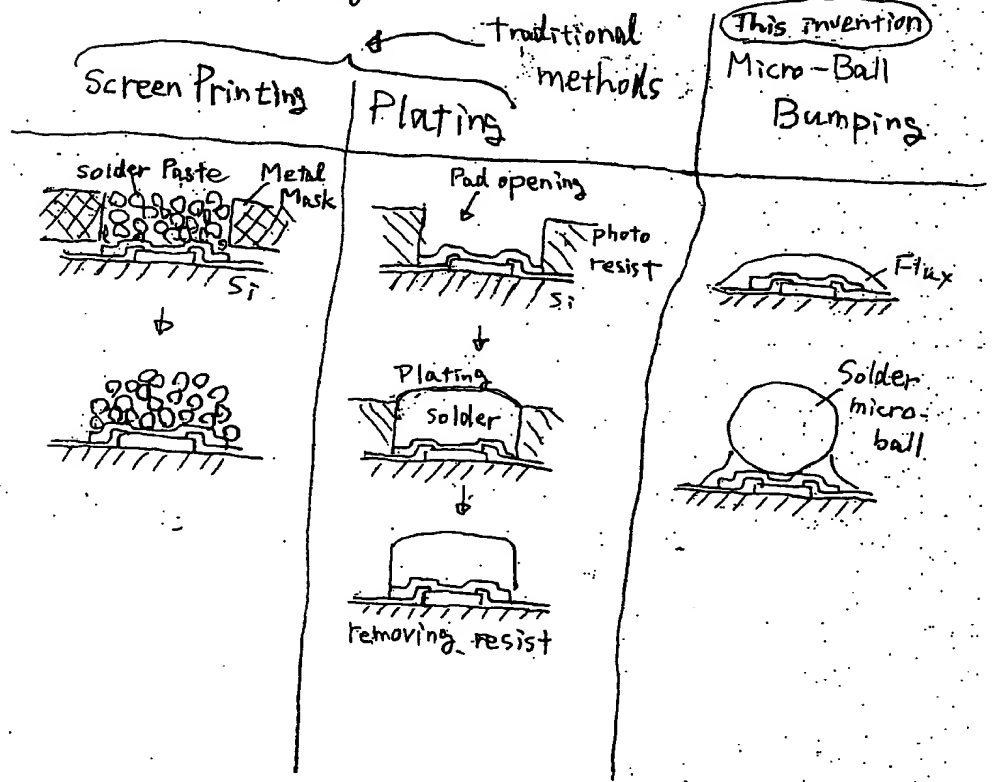 Traditional
methods
Screen Printing
Plating
This invention
Micro-Ball
Bumping
solder Paste
Metal
Mask
Si
Pad opening
photo
resist
Si
Plating
solder
removing resist
Flux
Solder
micro-
ball